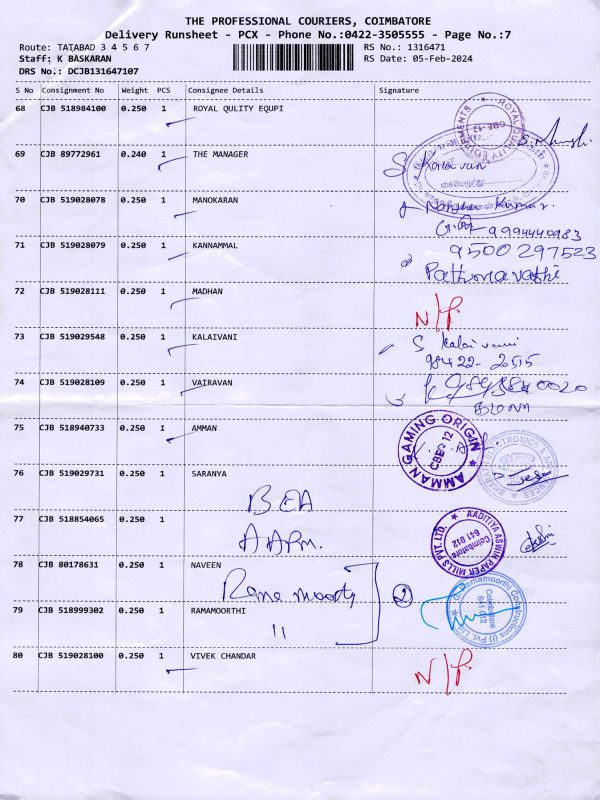 THE PROFESSIONAL COURIERS, COIMBATORE
Delivery Runsheet - PCX - Phone No.:0422-3505555 - Page No.:7
Route: TATABAD 3 4 5 6 7
RS No.: 1316471
Staff: K BASKARAN
RS Date: 05-Feb-2024
DRS No.: DCJB131647107
S No Consignment No Weight PCS Consignee Details Signature
68 CJB 518984100 0.250 1 ROYAL QULITY EQUPI
69 CJB 89772961 0.240 1 THE MANAGER
70 CJB 519028078 0.250 1 MANOKARAN
9994440983
71 CJB 519028079 0.250 1 KANNAMMAL
9500297523
Pathmavathi
72 CJB 519028111 0.250 1 MADHAN
N/P
73 CJB 519029548 0.250 1 KALAIVANI
S Kalaivani
98422-20515
74 CJB 519028109 0.250 1 VAIRAVAN
75 CJB 518940733 0.250 1 AMMAN
AMMAN GAMING ORIGIN
CBE-12
76 CJB 519029731 0.250 1 SARANYA
77 CJB 518854065 0.250 1
AADITIYA ASWIN PAPER MILLS PVT. LTD.
Coimbatore
641 012
78 CJB 80178631 0.250 1 NAVEEN
Rama moorthy
2
79 CJB 518999302 0.250 1 RAMAMOORTHI
"
Ramamoorthi Constructions (I) Pvt. Ltd.
Coimbatore
641 012
80 CJB 519028100 0.250 1 VIVEK CHANDAR
N/P